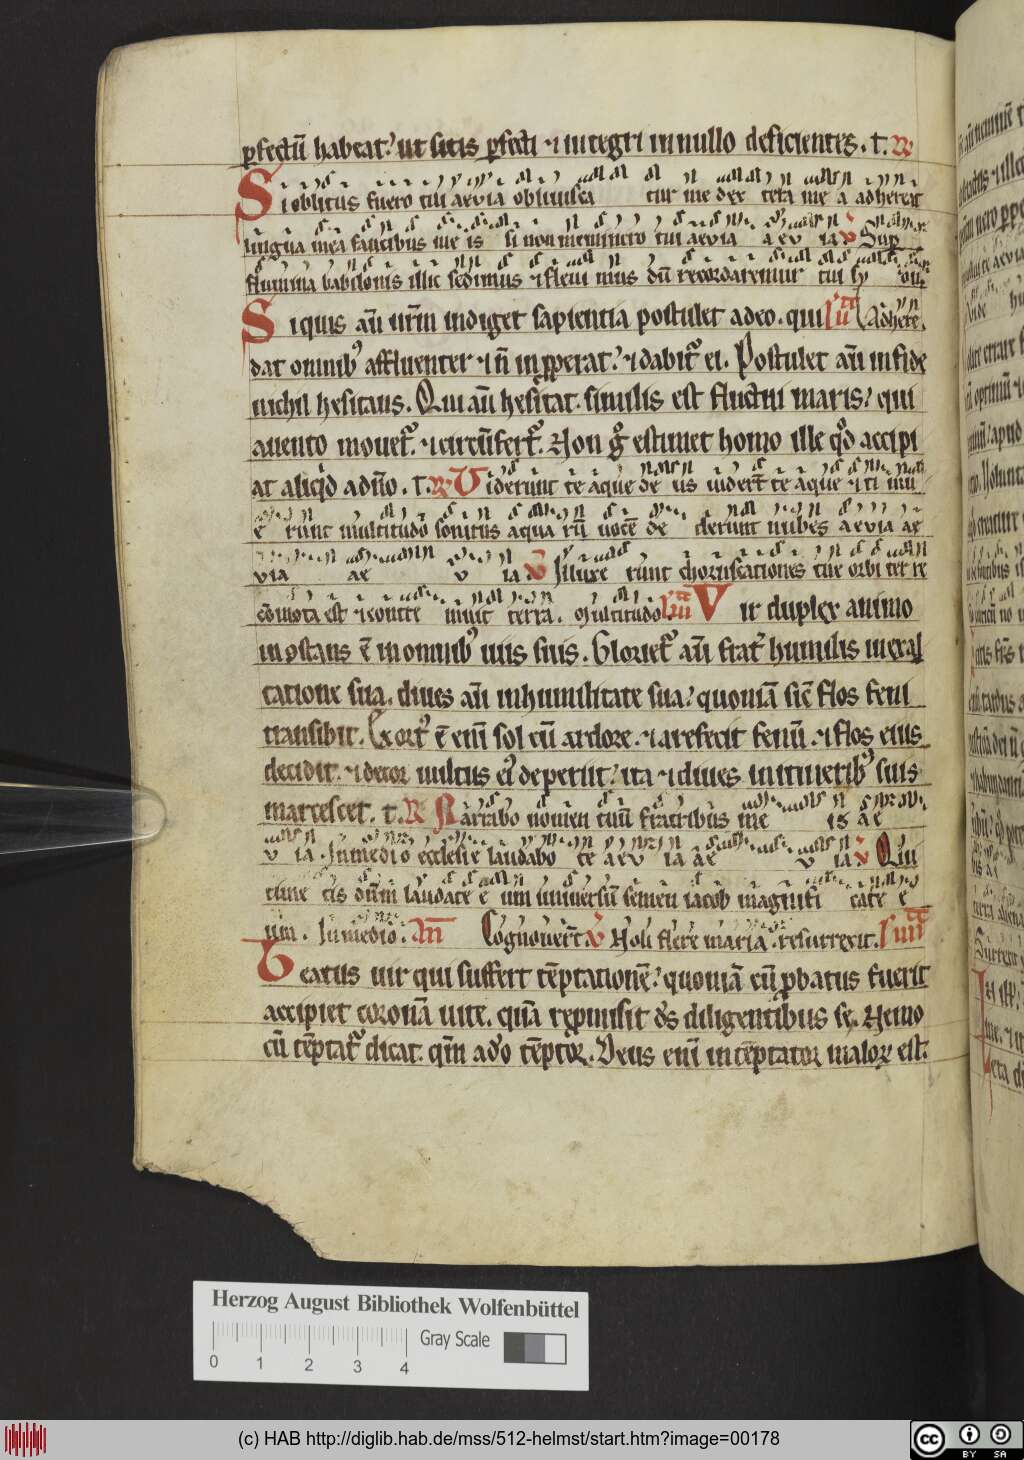 ꝑfectū habeat? ut sitis ꝑfecti ⁊ integri in nullo deficientes. t. R
Si oblitus fuero tui aevia obliuisca tur me dex tera me a adhereat
lingua mea faucibus me is si non meminero tui aevia a e v ia v Sup
flumina babilonis illic sedimus ⁊ fleui mus dū recordaremur tui sy on.
Si quis aū ur̄m indiget sapientia postulet a deo. qui l̄c ii Adhere.
dat omnibꝰ affluenter ⁊ n̄ inꝓperat? ⁊ dabit̉ ei. Postulet aū in fide
nichil hesitans. Qui aū hesitat. similis est fluctui maris? qui
a uento mouet̉. ⁊ circūfert̉. Non g̊ estimet homo ille qd̓ accipi
at aliqͥd a dn̄o. t. R Viderunt te aque de us uider̄t te aque ⁊ ti mu
e runt multitudo sonitus aqua rū uocē de derunt nubes aevia ae
via ae v ia v Illuxe runt choruscationes tue orbi ter re
cōmota est ⁊ contre muit terra. Multitudo. l̄c iii Vir duplex animo
incōstans ē in omnibꝰ uiis suis. Gloriet̉ aū frat̉ humilis in exal
tatione sua. diues aū in humilitate sua? quoniā sic̄ flos feni
transibit. Exort̉ ē eni᷒ sol cū ardore. ⁊ arefecit fenū. ⁊ flos eius
decidit. ⁊ decor uultus eiꝰ deperiit? ita ⁊ diues in itineribꝰ suis
marcescet. t. R Narrabo nomen tuū fratribus me is a e
v ia. In medio ecclesie laudabo te a e v ia ae v ia v Qui
time tis dnm̄ laudate e um uniuersū semen iacob magnifi cate e
um. In medio. An̄ Cognouer̄t v Noli flere maria. resurrexit. l̄c iiii
Beatus uir qui suffert tēptationē? quoniā cū ꝓbatus fuerit
accipiet coronā uite. quā repmisit ds̄ diligentibus se. Nemo
cū tēptat̉ dicat. qm̄ a do̓ tēptor. Deus eni᷒ intēptator maloꝝ est.
Herzog August Bibliothek Wolfenbüttel
Gray Scale
0 1 2 3 4
(c) HAB http://diglib.hab.de/mss/512-helmst/start.htm?image=00178
cc BY SA